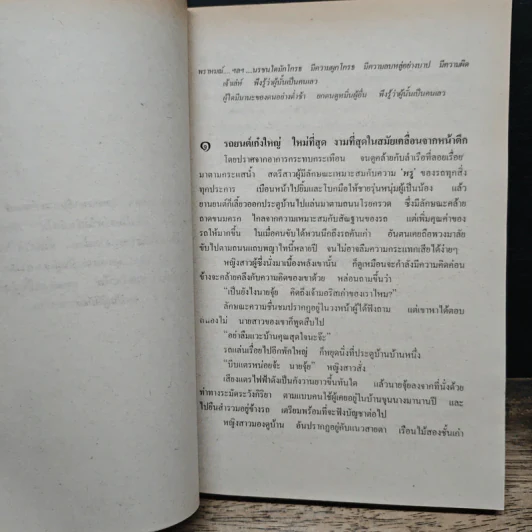 พราหมณ์... ฯลฯ... นรชนใดมักโกรธ มีความผูกโกรธ มีความลบหลู่อย่างบาป มีความผิด
เจ้าเล่ห์ พึงรู้ว่าผู้นั้นเป็นคนเลว
ผู้ใดมีมานะของตนอย่างต่ำช้า ยกตนดูหมิ่นผู้อื่น พึงรู้ว่าผู้นั้นเป็นคนเลว
๑ รถยนต์เก๋งใหญ่ ใหม่ที่สุด งามที่สุดในสมัยเคลื่อนจากหน้าตึก
โดยปราศจากอาการกระทบกระเทือน จนดูคล้ายกับลำเรือที่ลอยเรื่อย
มาตามกระแสน้ำ สตรีสาวผู้มีลักษณะเหมาะสมกับความ 'หรู' ของรถทุกสิ่ง
ทุกประการ เบือนหน้าไปยิ้มและโบกมือให้ชายรุ่นหนุ่มผู้เป็นน้อง แล้ว
ยานยนต์ก็เลี้ยวออกประตูบ้านไปแล่นมาตามถนนโรยกรวด ซึ่งมีลักษณะคล้าย
ถาดขนมครก ไกลจากความเหมาะสมกับสัณฐานของรถ แต่เพิ่มคุณค่าของ
รถให้มากขึ้น ในเมื่อคนขับได้หวนนึกถึงรถคันเก่า อันตนเคยถือพวงมาลัย
ขับไปตามถนนแถบพญาไทนี้หลายปี จนไม่อาจลืมความกระแทกเสียได้ง่ายๆ
หญิงสาวผู้ซึ่งนั่งมาเบื้องหลังเขานั้น ก็ดูเหมือนจะกำลังมีความคิดค่อน
ข้างจะคล้ายคลึงกับความคิดของเขาด้วย หล่อนถามขึ้นว่า
“เป็นยังไงนายจุ้ย คิดถึงเจ้ามอริสเก่าของเราไหม?”
ลักษณะความชื่นชมปรากฏอยู่ในวงหน้าผู้ได้ฟังถาม แต่เขาหาได้ตอบ
สนองไม่ นายสาวของเขาก็พูดสืบไป
“อย่าลืมแวะบ้านคุณสุดใจนะจ๊ะ”
รถแล่นเรื่อยไปอีกพักใหญ่ ก็หยุดนิ่งที่ประตูบ้านบ้านหนึ่ง
“บีบแตรหน่อยจ้ะ นายจุ้ย” หญิงสาวสั่ง
เสียงแตรไฟฟ้าดังเป็นกังวานยาวขึ้นทันใด แล้วนายจุ้ยลงจากที่นั่งด้วย
ท่าทางระมัดระวังกิริยา ตามแบบคนใช้ผู้เคยอยู่ในบ้านขุนนางมานานปี และ
ไปยืนสำรวมอยู่ข้างรถ เตรียมพร้อมที่จะฟังบัญชาต่อไป
หญิงสาวมองดูบ้าน อันปรากฏอยู่กับแนวสายตา เรือนไม้สองชั้นเก่า